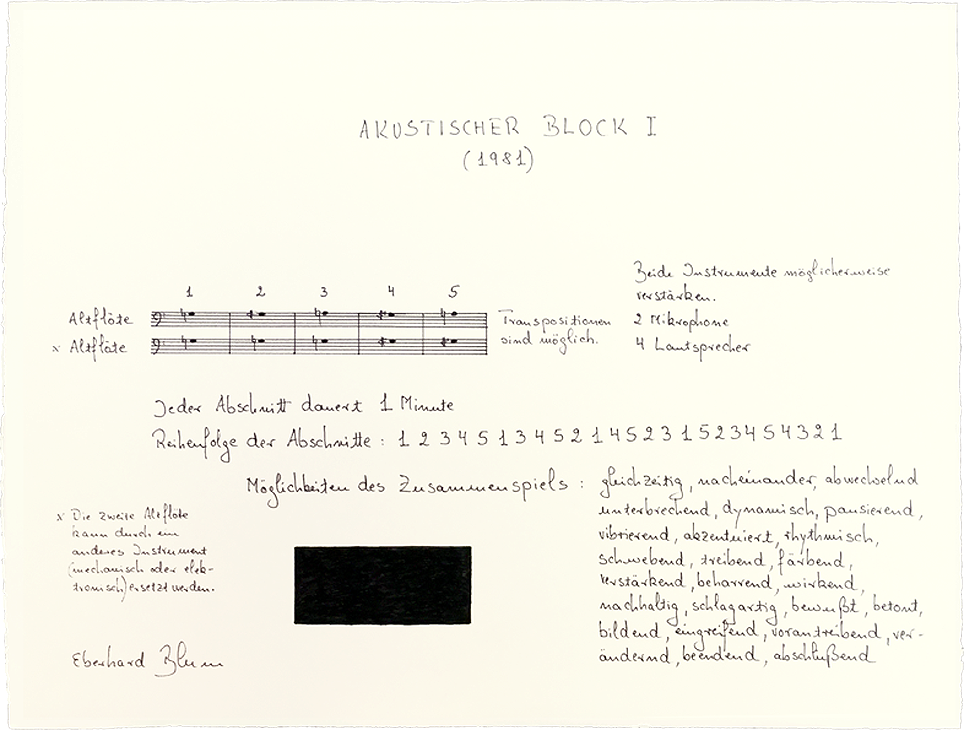 AKUSTISCHER BLOCK I
(1981)
1 2 3 4 5
Altflöte
x Altflöte
Transpositionen
sind möglich.
Beide Instrumente möglicherweise
verstärken.
2 Mikrophone
4 Lautsprecher
Jeder Abschnitt dauert 1 Minute
Reihenfolge der Abschnitte : 1 2 3 4 5 1 3 4 5 2 1 4 5 2 3 1 5 2 3 4 5 4 3 2 1
Möglichkeiten des Zusammenspiels :
gleichzeitig, nacheinander, abwechselnd
unterbrechend, dynamisch, pausierend,
vibrierend, akzentuiert, rhythmisch,
schwebend, treibend, färbend,
verstärkend, beharrend, wirkend,
nachhaltig, schlagartig, bewußt, betont,
bildend, eingreifend, vorantreibend, ver-
ändernd, beendend, abschlußend
x Die zweite Altflöte
kann durch ein
anderes Instrument
(mechanisch oder elek-
tronisch) ersetzt werden.
Eberhard Blum